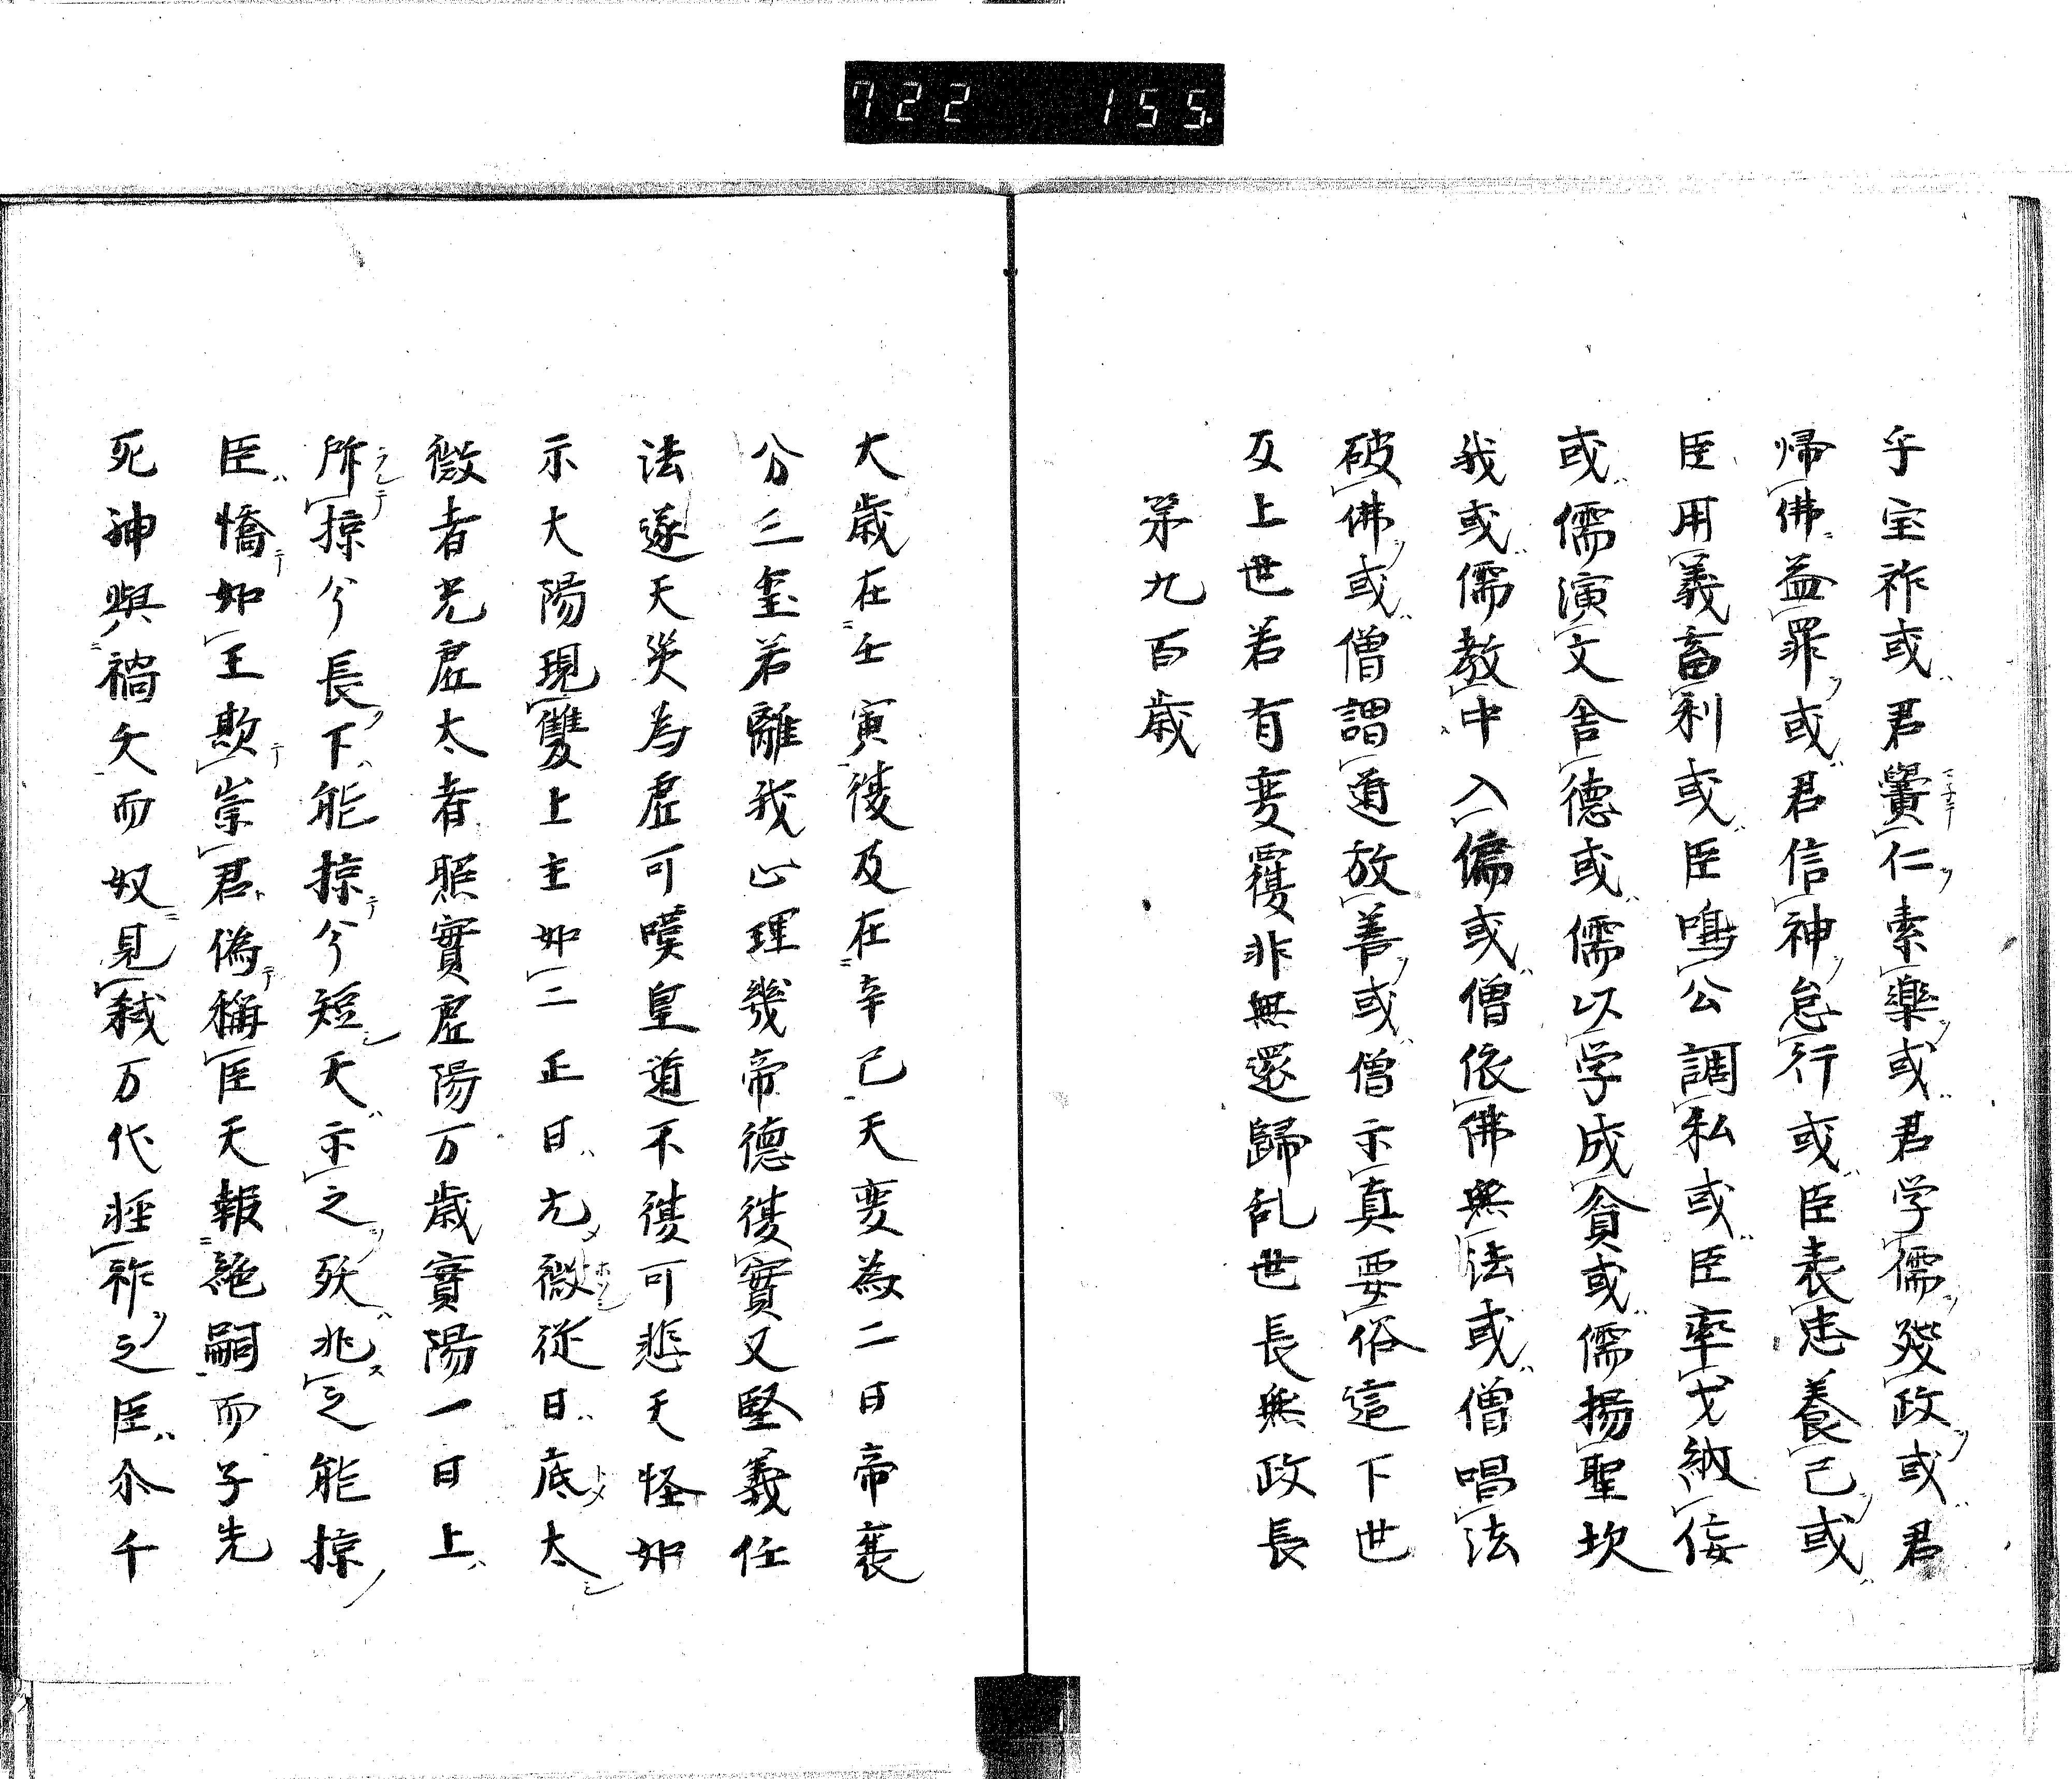 722 155.
乎宝祚或君黌仁索樂或君学儒癈政或君
帰佛益罪或君信神怠行或臣表忠養己或
臣用義畜利或臣鳴公調私或臣率戈納侫
或儒演文舎德或儒以学成貪或儒揚聖坎
我或儒教中入偏或僧依佛無法或僧唱法
破佛或僧謂道放善或僧示真要俗這下世
反上世若有変覆非無還歸乱世長無政長
第九百歳
大歳在壬寅復及在辛己天変為二日帝喪
分三璽若離我心理幾帝德復實又堅義任
法逐天災為虚可嘆皇道不復可悲天怪如
示大陽現雙上主如二正日亢微從日底太
微者光虚太者照實虚陽万歳實陽一日上
所掠兮長下能掠兮短天示之殃兆之能掠
臣憍如王欺崇君偽稱臣天報絶嗣而子先
死神與禍欠而奴見弑万代誑祚之臣尒千